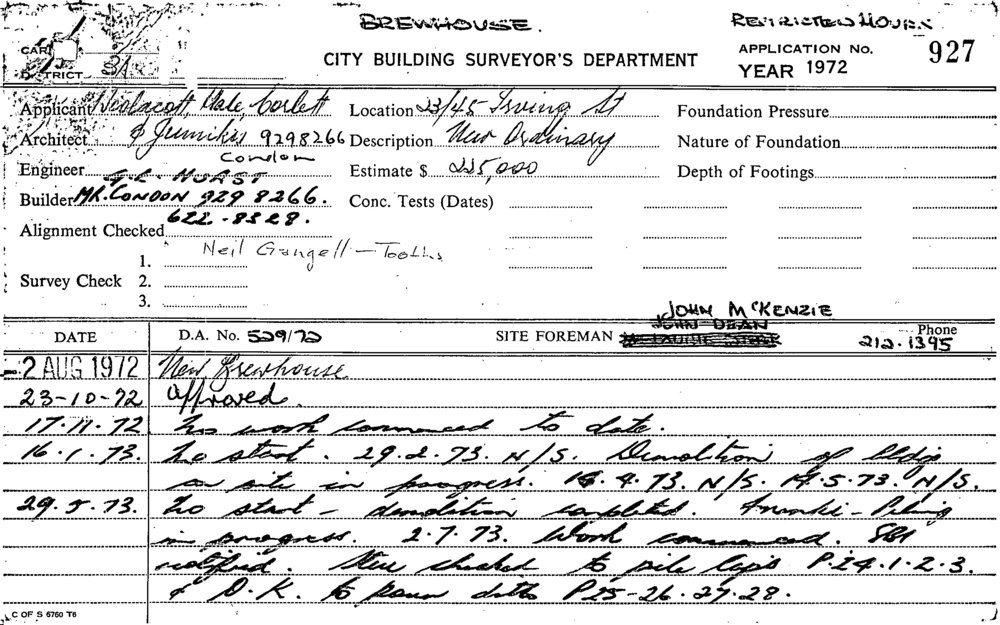 BREWHOUSE.
RESTRICTED HOURS
CARD
DISTRICT
CITY BUILDING SURVEYOR'S DEPARTMENT
APPLICATION No. 927
YEAR 1972
Applicant Wiolacott, Hale, Corlett
Location 23/45 Irving St
Foundation Pressure
Architect & Jumikis 9298266
Description New Ordinary
Nature of Foundation
Condon
Engineer
Estimate $ 225,000
Depth of Footings
Builder MR. CONDON 929 8266.
Conc. Tests (Dates)
622-8328.
Alignment Checked
Neil Gangell - Tooths
1.
Survey Check 2.
3.
JOHN McKENZIE
JOHN DEAN
DATE
D.A. No. 529/72
SITE FOREMAN
Phone
212.1395
2 AUG 1972 New Brewhouse
23-10-72 Approved.
17.11.72 No work commenced to date.
16.1.73. No start. 29.2.73. N/S. Demolition of bldgs
on site in progress. 16.4.73. N/S. 14.5.73. N/S.
29.5.73. No start - demolition completed. Franki-Piling
in progress. 2.7.73. Work commenced.
notified. Steel checked to pile caps P.24.1.2.3.
& O.K. to pour ditto P25-26.27.28.
C OF S 6760 T6